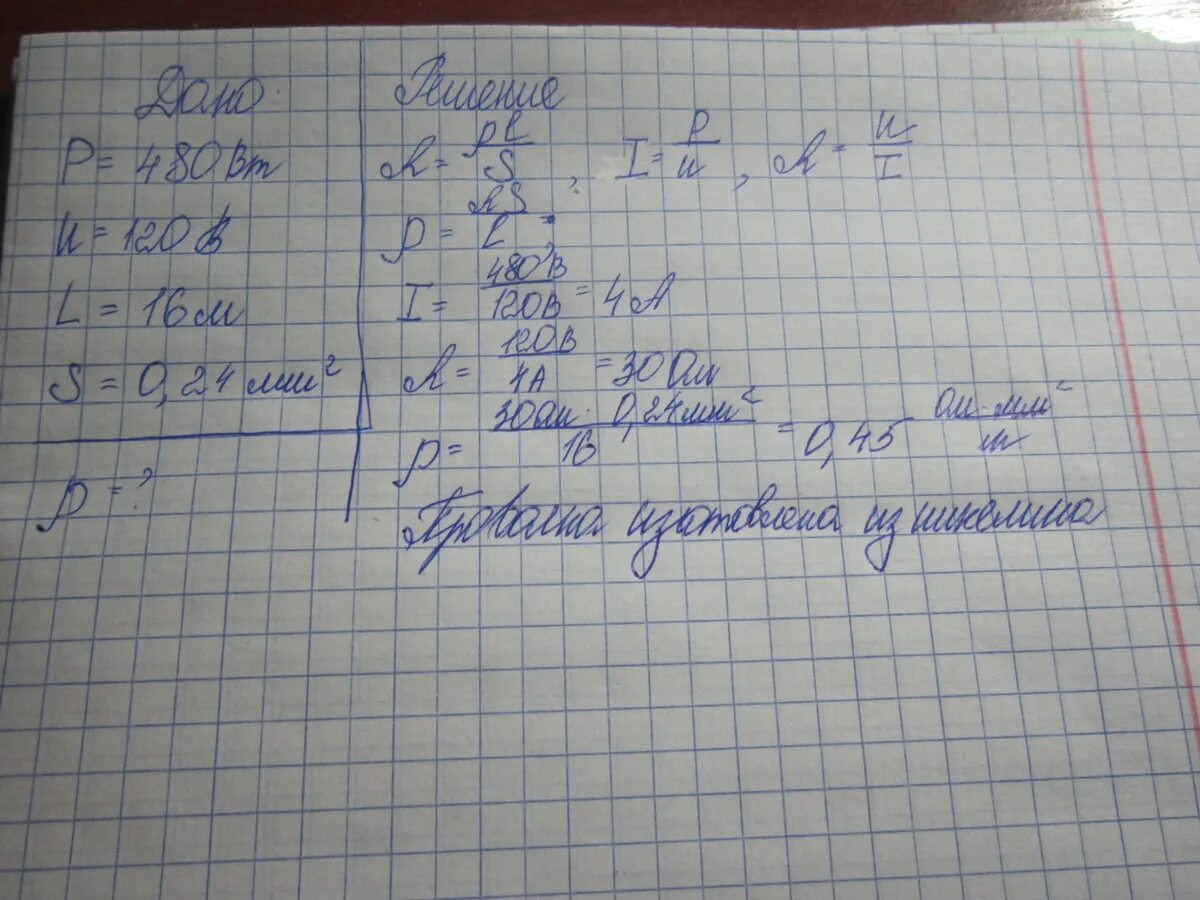 Дано
P = 480 Вт
U = 120 В
L = 16 м
S = 0,24 мм²
ρ = ?
Решение
R = ρl/S, I = P/U, R = U/I
ρ = RS/L,
I = 480 В/120 В = 4 А
R = 120 В/4 А = 30 Ом
ρ = 30 Ом · 0,24 мм²/16 = 0,45 Ом·мм²/м
Проволка изготовлена из никелина